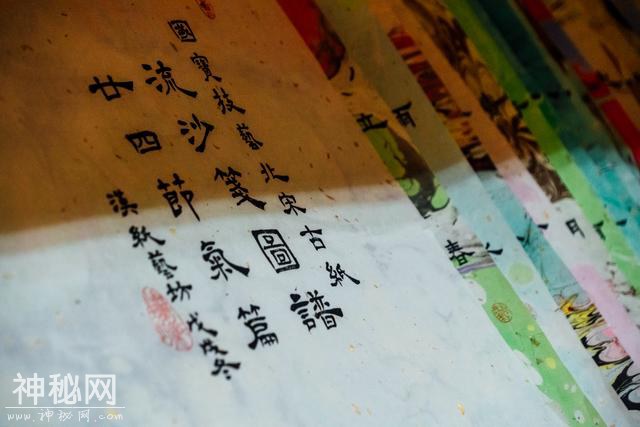 國寶技藝北宋古紙
流沙箋圖譜
廿四節氣篇
漢紙藝坊戊冬
春
月
神秘网
www.神秘网.com